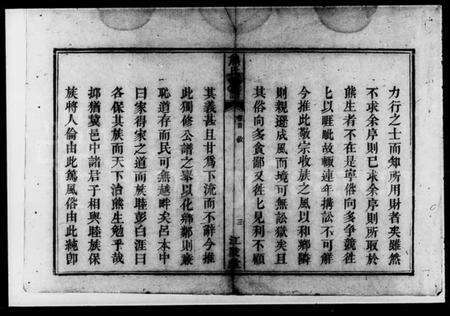 力行之士而知所用財者矣雖然
不求余序則已求余序則所取於
熊生者不在是寧俗向多爭競往
匕以睚眦故輒連年搆訟不可解
今推此敬宗收族之風以和鄉隣
則親遜成風而境可無訟獄矣且
其俗向多貪鄙又往匕見利不顧
其義甚且甘爲下流而不辭今推
此獨修公譜之舉以化鄉鄰則廉
恥道存而民可無越畔矣呂本中
曰家得家之道而族睦彭白涯曰
各保其族而天下治熊生勉乎哉
抑猶冀邑中諸君子相與睦族保
族將人倫由此篤風俗由此純卽
三